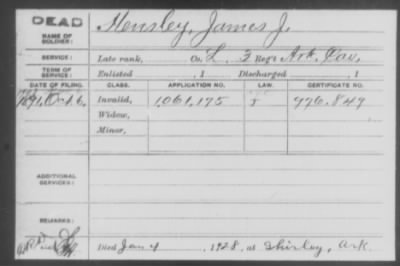 DEAD
NAME OF SOLDIER: Hensley, James J.
SERVICE: Late rank, Co. L. 3 Reg't Ark. Cav.
TERM OF SERVICE: Enlisted , 1 Discharged , 1
DATE OF FILING. CLASS. APPLICATION NO. LAW. CERTIFICATE NO.
1891, Oct. 6. Invalid, 1,061,175 776.849
Widow,
Minor,
ADDITIONAL SERVICES:
REMARKS:
Died Jan 4 1928. at Shirley, Ark.